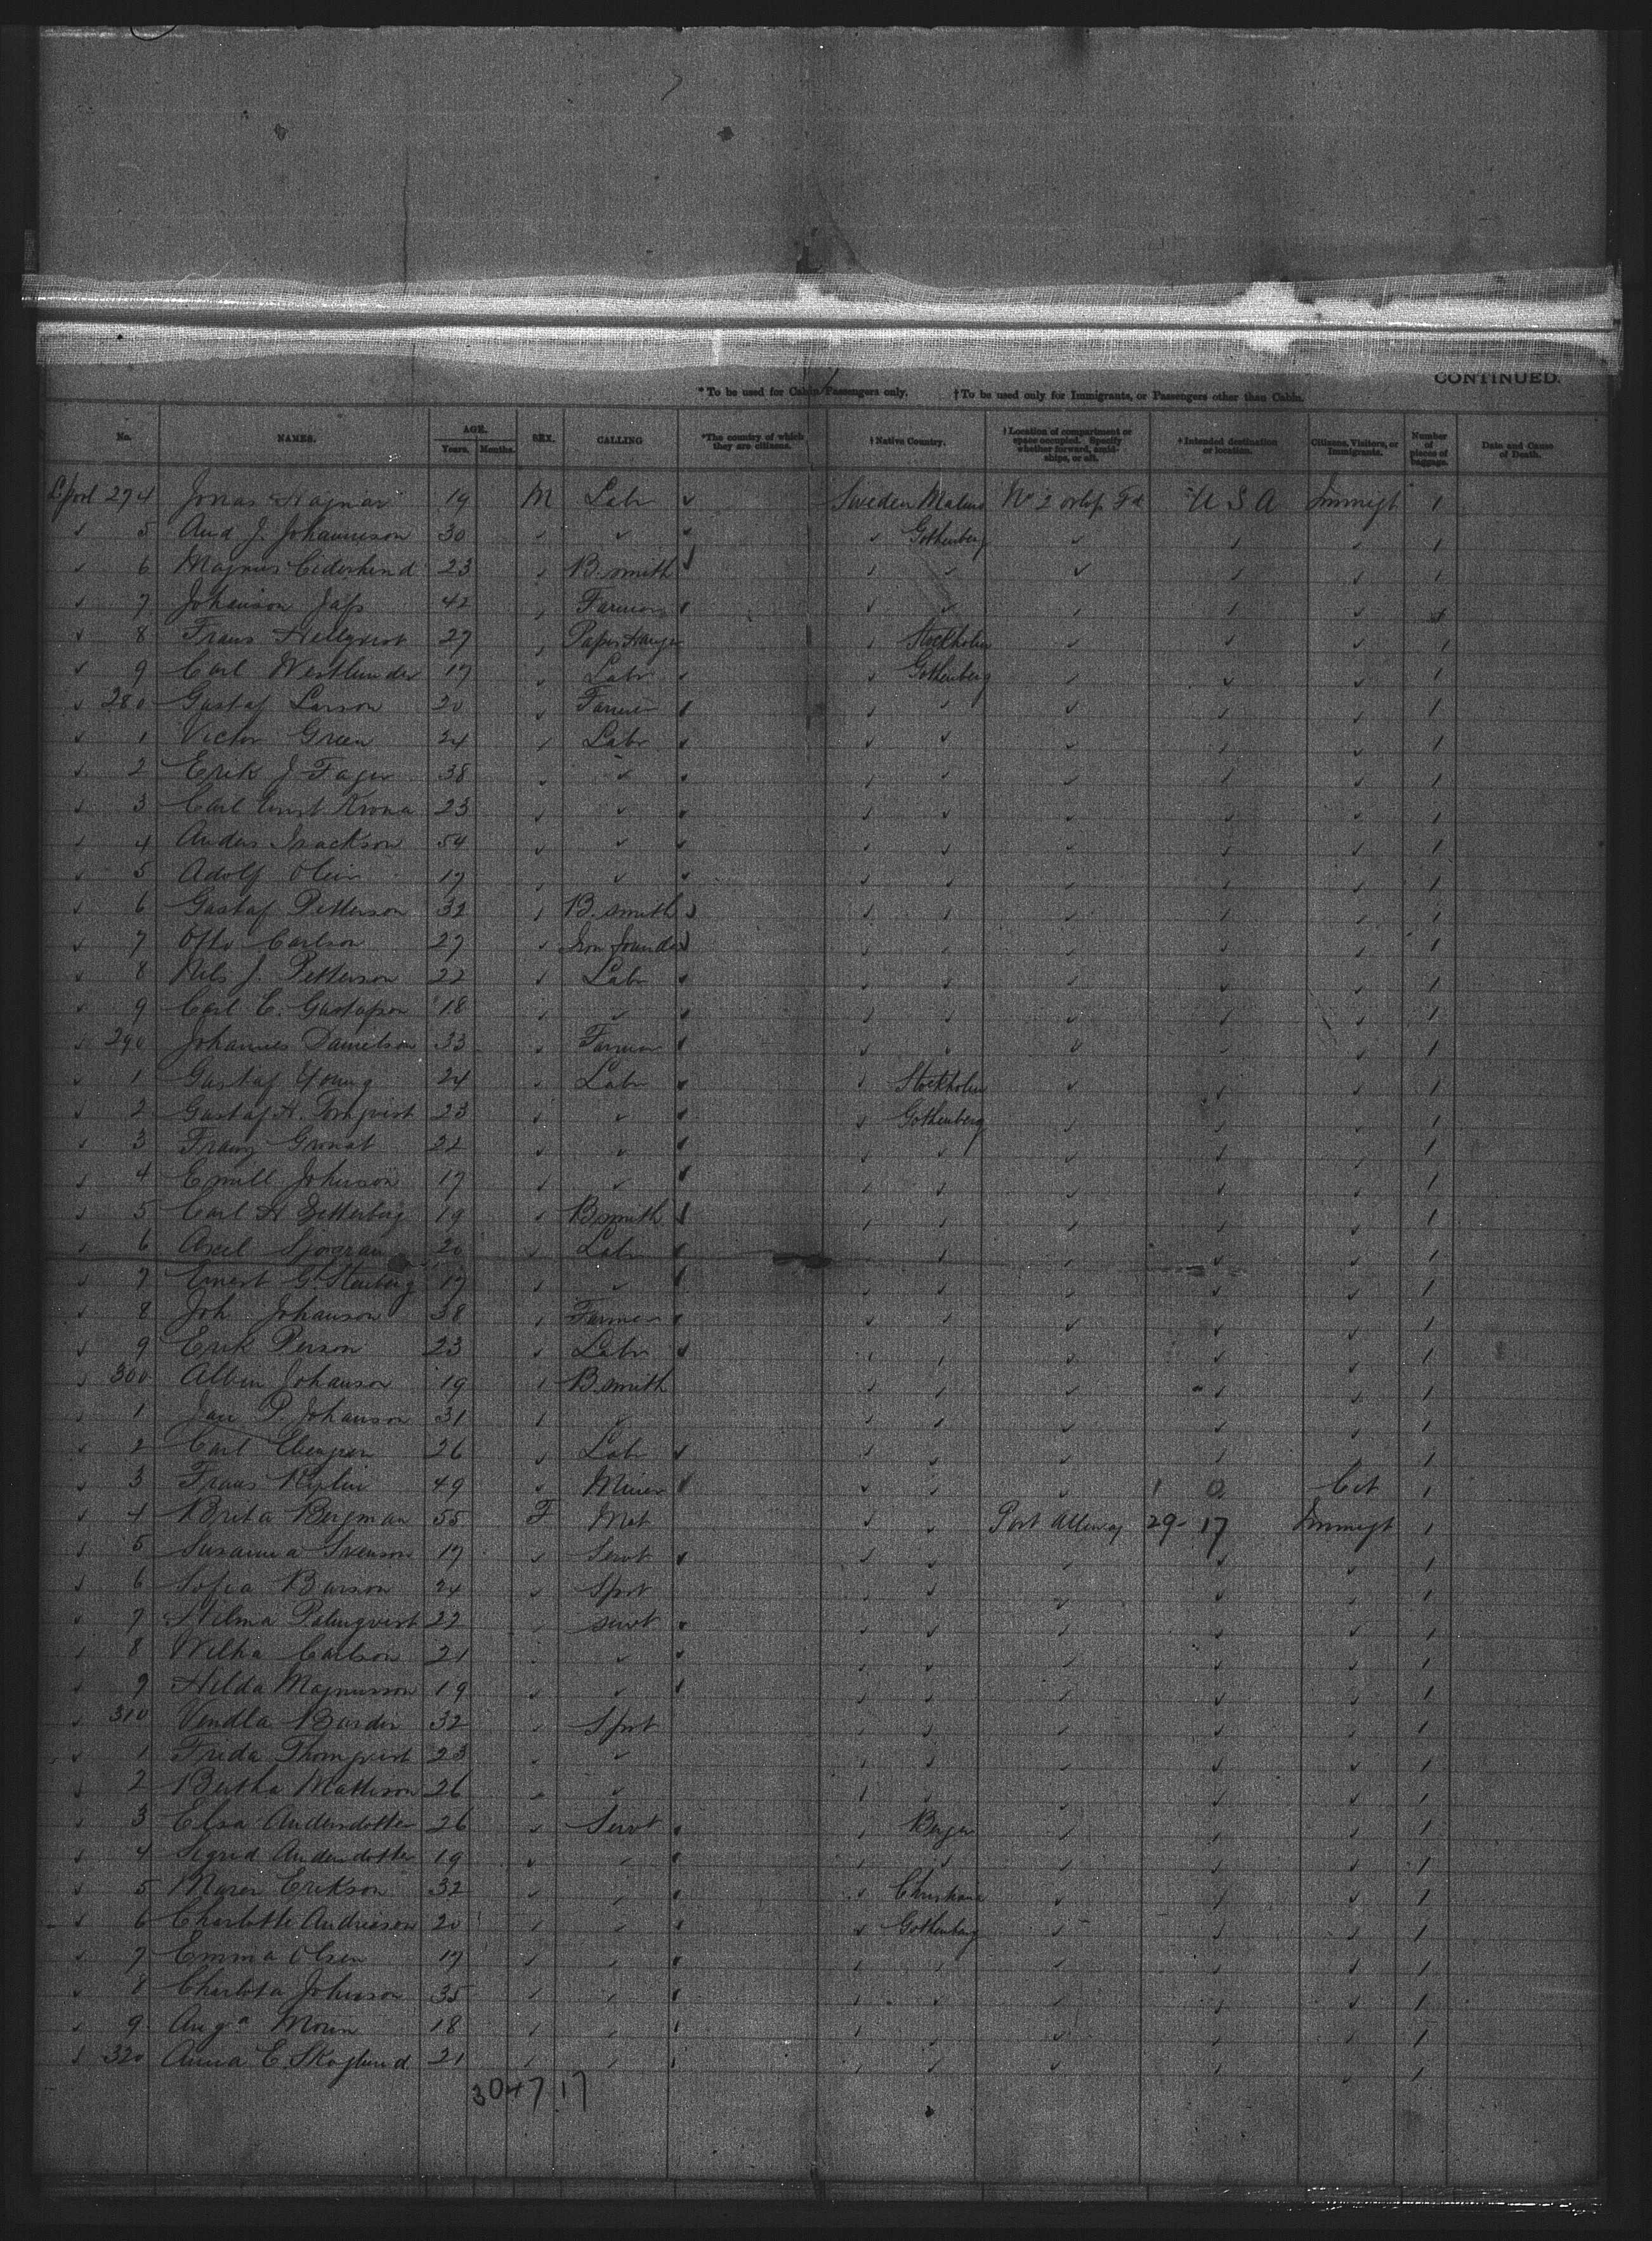 CONTINUED.
*To be used for Cabin Passengers only. †To be used only for Immigrants, or Passengers other than Cabin.
No. NAMES. AGE. Years. Months. SEX. CALLING *The country of which they are citizens. †Native Country. †Location of compartment or space occupied. Specify whether forward, amidships, or aft. *Intended destination or location. Citizens, Visitors, or Immigrants. Number of pieces of baggage. Date and Cause of Death.
L'pool 274 Jonas Hagmar 19 M Labr ✓ Sweden Malmo No 2 orlop Fd U S A Immigt 1
✓ 5 And J. Johannison 30 ✓ ✓ ✓ ✓ Gothenberg ✓ ✓ ✓ 1
✓ 6 Magnus Ciderkind 23 ✓ B. smith ✓ ✓ ✓ ✓ ✓ 1
✓ 7 Johanson 42 ✓ Farmer ✓ ✓ ✓ ✓ ✓
✓ 8 Frans Hellqvist 27 ✓ Paper Hanger ✓ Stockholm ✓ ✓ ✓ 1
✓ 9 Carl Westlunder 17 ✓ Labr ✓ ✓ Gothenberg ✓ ✓ ✓ 1
✓ 280 Gustaf Larson 20 ✓ Farmer ✓ ✓ ✓ ✓ ✓ 1
✓ 1 Victor Green 24 ✓ Labr ✓ ✓ ✓ ✓ ✓ ✓ 1
✓ 2 Erik J Fager 38 ✓ ✓ ✓ ✓ ✓ ✓ ✓ ✓ 1
✓ 3 Carl Ernst Krona 23 ✓ ✓ ✓ ✓ ✓ ✓ ✓ ✓ 1
✓ 4 Anders Isackson 54 ✓ ✓ ✓ ✓ ✓ ✓ ✓ ✓ 1
✓ 5 Adolf Olein 17 ✓ ✓ ✓ ✓ ✓ ✓ ✓ ✓ 1
✓ 6 Gustaf Petterson 32 ✓ B. smith ✓ ✓ ✓ ✓ ✓ 1
✓ 7 Otto Carlson 27 ✓ Iron founder ✓ ✓ ✓ ✓ ✓ 1
✓ 8 Nils J. Petterson 22 ✓ Labr ✓ ✓ ✓ ✓ ✓ ✓ 1
✓ 9 Carl E. Gustafson 18 ✓ ✓ ✓ ✓ ✓ ✓ ✓ ✓ 1
✓ 290 Johannes Danielson 33 ✓ Farmer ✓ ✓ ✓ ✓ ✓ 1
✓ 1 Gustaf Young 24 ✓ Labr ✓ ✓ Stockholm ✓ ✓ ✓ 1
✓ 2 Gustaf A. Tornqvist 23 ✓ ✓ ✓ ✓ Gothenberg ✓ ✓ ✓ 1
✓ 3 Franz 22 ✓ ✓ ✓ ✓ ✓ ✓ ✓ ✓ 1
✓ 4 Emill Johnson 17 ✓ ✓ ✓ ✓ ✓ ✓ ✓ ✓ 1
✓ 5 Carl A Zetterberg 19 ✓ B smith ✓ ✓ ✓ ✓ ✓ 1
✓ 6 Axel Sjogran 20 ✓ Labr ✓ ✓ ✓ ✓ ✓ 1
✓ 7 Ernest G Stenberg 17 ✓ ✓ ✓ ✓ ✓ ✓ ✓ 1
✓ 8 Joh Johanson 38 ✓ Farmer ✓ ✓ ✓ ✓ ✓ ✓ 1
✓ 9 Erik Person 23 ✓ Labr ✓ ✓ ✓ ✓ ✓ ✓ 1
✓ 300 Albin Johanson 19 ✓ B. smith ✓ ✓ ✓ ✓ ✓ 1
✓ 1 Jan P. Johanson 31 ✓ ✓ ✓ ✓ ✓ ✓ ✓ 1
✓ 2 Carl 26 ✓ Labr ✓ ✓ ✓ ✓ ✓ ✓ 1
✓ 3 Frans 49 ✓ Miner ✓ ✓ ✓ ✓ 1 0 Cit 1
✓ 4 Brita Bergman 55 F Mat ✓ ✓ Port Alleway 29-17 Immigt 1
✓ 5 Susanna Svenson 17 ✓ Servt ✓ ✓ ✓ ✓ ✓ ✓ 1
✓ 6 Sofia Burson 24 ✓ Spst ✓ ✓ ✓ ✓ ✓ 1
✓ 7 Hilma Palmqvist 22 ✓ servt ✓ ✓ ✓ ✓ ✓ ✓ 1
✓ 8 Wilha Carlson 21 ✓ ✓ ✓ ✓ ✓ ✓ ✓ ✓ 1
✓ 9 Hilda Magnusson 19 ✓ ✓ ✓ ✓ ✓ ✓ ✓ ✓ 1
✓ 310 Vendla 32 ✓ Spst ✓ ✓ ✓ ✓ ✓ 1
✓ 1 Frida Thornqvist 23 ✓ ✓ ✓ ✓ ✓ ✓ ✓ 1
✓ 2 Bertha Matteson 26 ✓ ✓ ✓ ✓ ✓ ✓ ✓ 1
✓ 3 Elsa Andersdotter 26 ✓ Servt ✓ ✓ Bergen ✓ ✓ ✓ 1
✓ 4 Sigrid Andersdotter 19 ✓ ✓ ✓ ✓ ✓ ✓ ✓ ✓ 1
✓ 5 Maren Erikson 32 ✓ ✓ ✓ ✓ Christiana ✓ ✓ ✓ 1
✓ 6 Charlotte Andreason 20 ✓ ✓ ✓ ✓ Gothenberg ✓ ✓ ✓ 1
✓ 7 Emma Olsen 17 ✓ ✓ ✓ ✓ ✓ ✓ ✓ ✓ 1
✓ 8 Charlota Johnson 35 ✓ ✓ ✓ ✓ ✓ ✓ ✓ ✓ 1
✓ 9 Auga 18 ✓ ✓ ✓ ✓ ✓ ✓ ✓ ✓ 1
✓ 320 Anna E. Skoglund 21 ✓ ✓ ✓ ✓ ✓ ✓ ✓ ✓ 1
3047 17